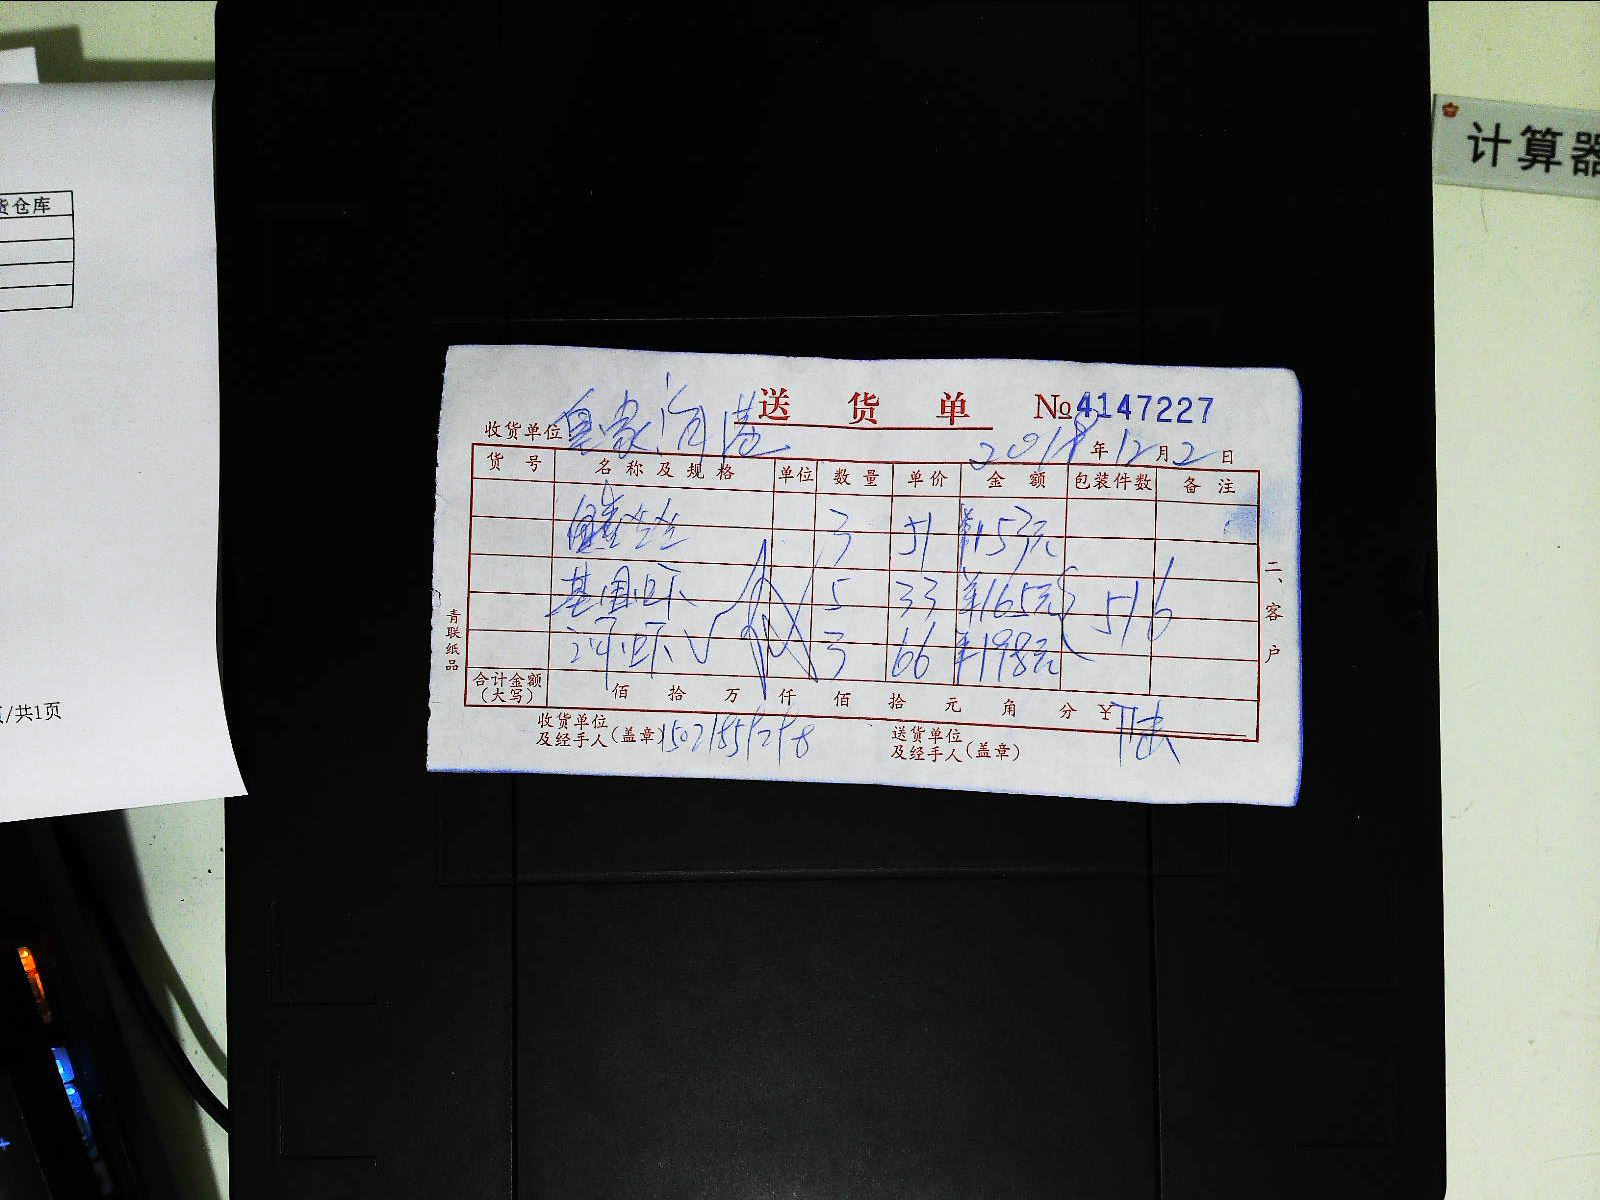 计算器
货仓库
送 货 单 №4147227
收货单位 皇家消港
2018年12月2日
货 号 名 称 及 规 格 单位 数 量 单价 金 额 包装件数 备 注
3 51 ¥153元
基围虾 5 33 ¥165元 516
河虾 3 66 ¥198元
合计金额(大写) 佰 拾 万 仟 佰 拾 元 角 分 ¥
收货单位及经手人(盖章)
送货单位及经手人(盖章)
二、客户
青联纸品
/共1页